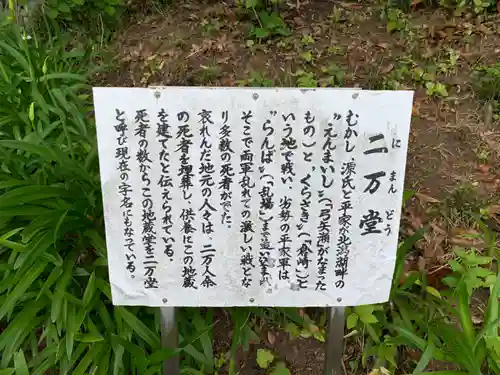 二万堂
に
まん
どう
むかし、源氏と平家が北潟湖畔の
〝えんまいし〟(「弓矢源がなまった
もの)と、〝くらさき〟(「倉崎」)と
いう地で戦い、劣勢の平家軍は
〝らんば〟(「乱場」)まで追いこまれ、
そこで両軍乱れての激しい戦とな
り多数の死者がでた。
哀れんだ地元の人々は、二万人余
の死者を埋葬し、供養にこの地蔵
を建てたと伝えられている。
死者の数からこの地蔵堂を二万堂
と呼び現在の字名にもなっている。